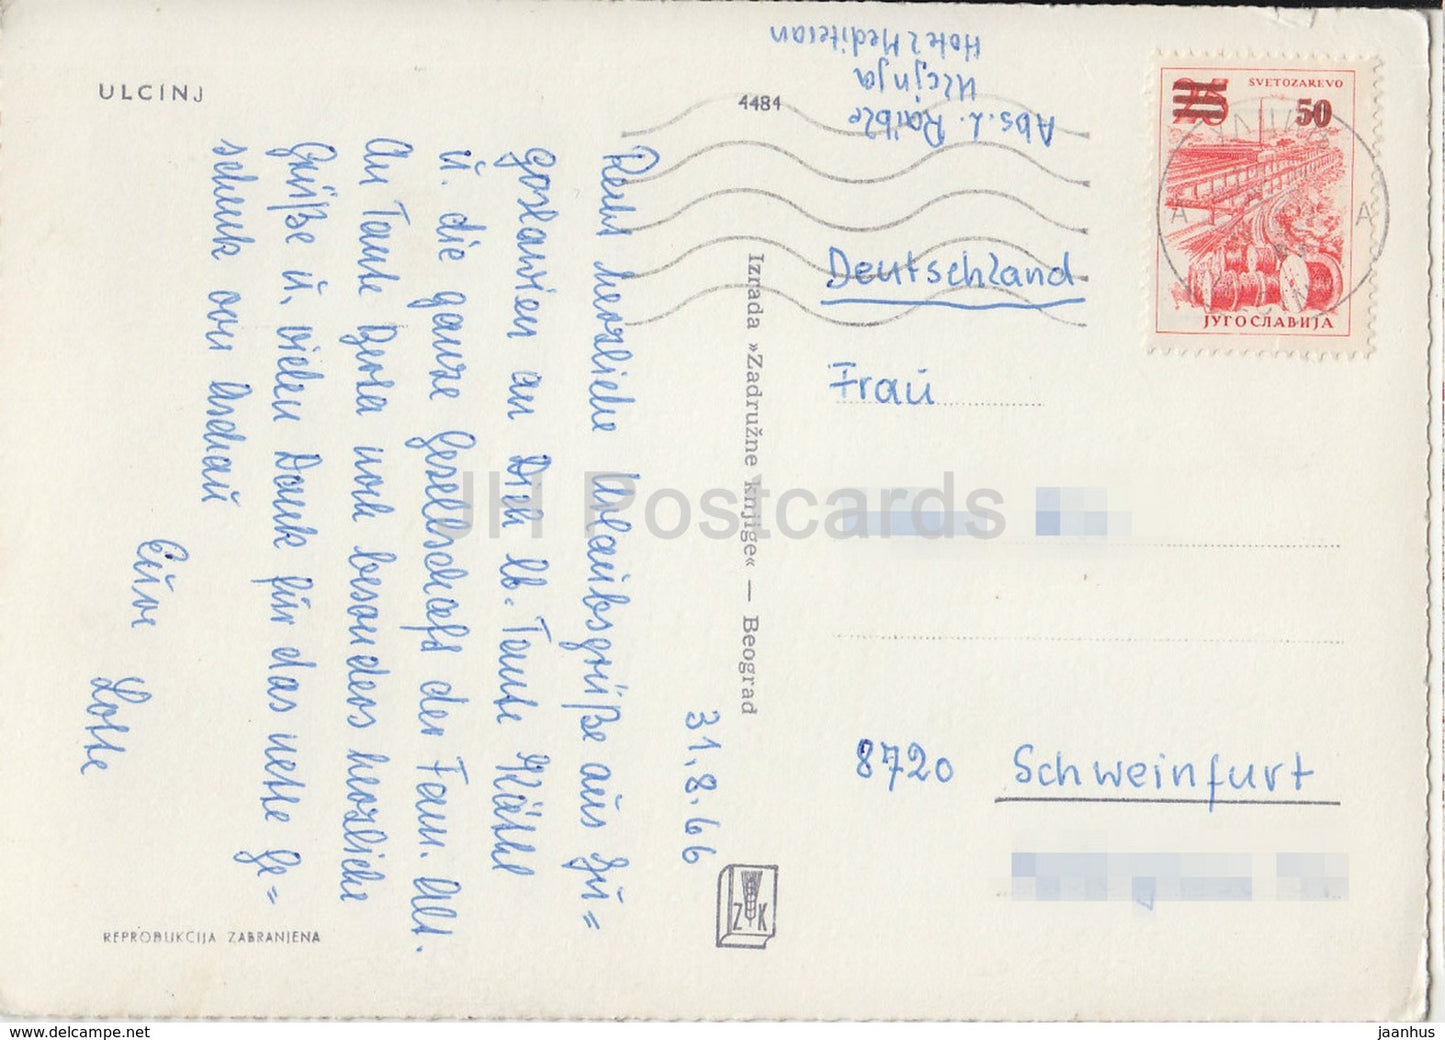 ULCINJ
4484
Abs. L. Raible
Ulcinja
Hotel Mediteran
SVETOZAREVO
50
ЈУГОСЛАВИЈА
31.8.66
Recht herzliche Urlaubsgrüße aus Ju=
goslawien an Dich lb. Tante
u. die ganze Gesellschaft der Fam. Alt.
An Tante Berta noch besonders herzliche
Grüße u. vielen Dank für das nette Ge=
schenk von Aschau
Eure Lotte
Izrada »Zadružne knjige« — Beograd
Z K
Deutschland
Frau
8720 Schweinfurt
REPRODUKCIJA ZABRANJENA
JH Postcards
www.delcampe.net
jaanhus